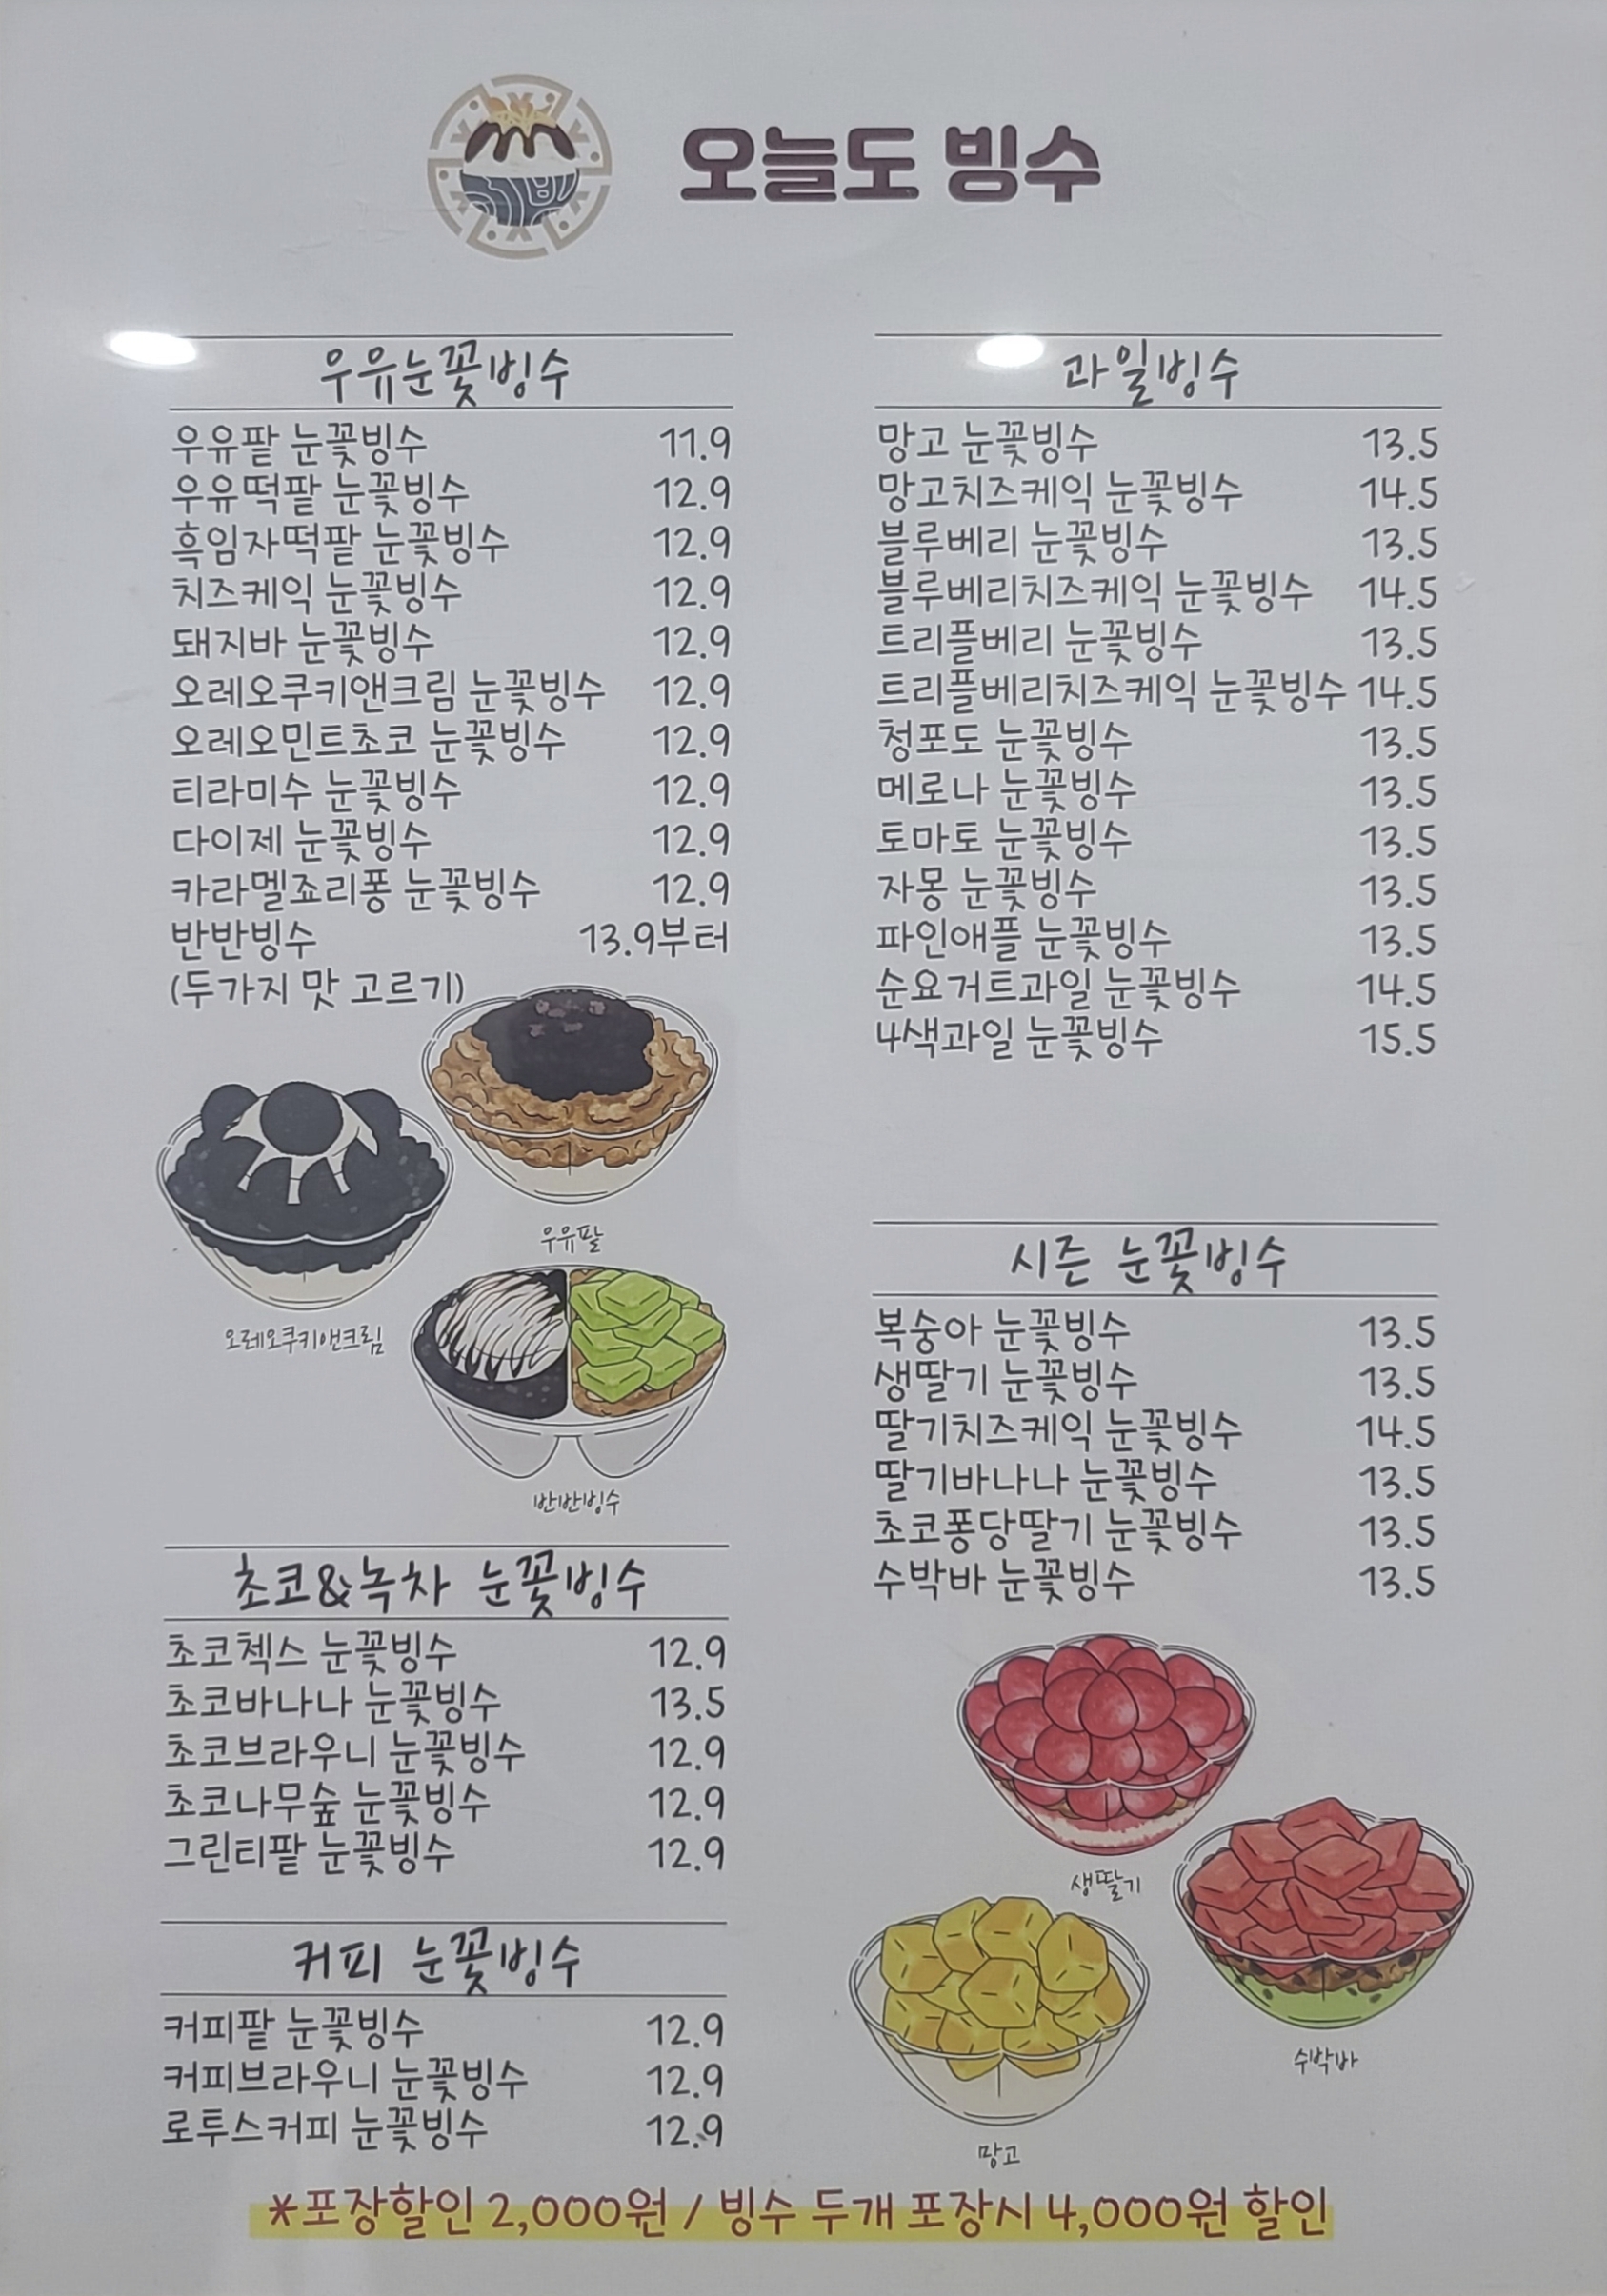 오늘도 빙수
우유눈꽃빙수
우유팥 눈꽃빙수 11.9
우유떡팥 눈꽃빙수 12.9
흑임자떡팥 눈꽃빙수 12.9
치즈케익 눈꽃빙수 12.9
돼지바 눈꽃빙수 12.9
오레오쿠키앤크림 눈꽃빙수 12.9
오레오민트초코 눈꽃빙수 12.9
티라미수 눈꽃빙수 12.9
다이제 눈꽃빙수 12.9
카라멜죠리퐁 눈꽃빙수 12.9
반반빙수 13.9부터
(두가지 맛 고르기)
우유팥
오레오쿠키앤크림
반반빙수
초코&녹차 눈꽃빙수
초코첵스 눈꽃빙수 12.9
초코바나나 눈꽃빙수 13.5
초코브라우니 눈꽃빙수 12.9
초코나무숲 눈꽃빙수 12.9
그린티팥 눈꽃빙수 12.9
커피 눈꽃빙수
커피팥 눈꽃빙수 12.9
커피브라우니 눈꽃빙수 12.9
로투스커피 눈꽃빙수 12.9
과일빙수
망고 눈꽃빙수 13.5
망고치즈케익 눈꽃빙수 14.5
블루베리 눈꽃빙수 13.5
블루베리치즈케익 눈꽃빙수 14.5
트리플베리 눈꽃빙수 13.5
트리플베리치즈케익 눈꽃빙수 14.5
청포도 눈꽃빙수 13.5
메로나 눈꽃빙수 13.5
토마토 눈꽃빙수 13.5
자몽 눈꽃빙수 13.5
파인애플 눈꽃빙수 13.5
순요거트과일 눈꽃빙수 14.5
4색과일 눈꽃빙수 15.5
시즌 눈꽃빙수
복숭아 눈꽃빙수 13.5
생딸기 눈꽃빙수 13.5
딸기치즈케익 눈꽃빙수 14.5
딸기바나나 눈꽃빙수 13.5
초코퐁당딸기 눈꽃빙수 13.5
수박바 눈꽃빙수 13.5
생딸기
수박바
망고
*포장할인 2,000원 / 빙수 두개 포장시 4,000원 할인